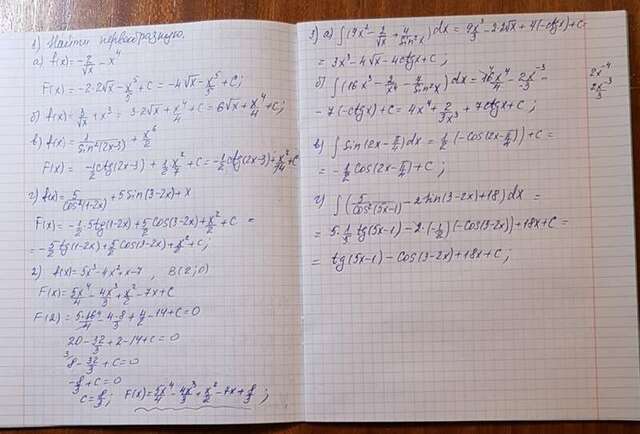 1) Найти первообразную.
а) f(x) = -2/√x - x⁴
F(x) = -2·2√x - x⁵/5 + C = -4√x - x⁵/5 + C;
б) f(x) = 3/√x + x³ = 3·2√x + x⁴/4 + C = 6√x + x⁴/4 + C;
в) f(x) = 1/sin²(2x-3) + x⁶/2
F(x) = -1/2 ctg(2x-3) + 1/2 x⁷/7 + C = -1/2 ctg(2x-3) + x⁷/14 + C
г) f(x) = 5/cos²(1-2x) + 5sin(3-2x) + x
F(x) = -1/2·5tg(1-2x) + 5/2 cos(3-2x) + x²/2 + C =
= -5/2 tg(1-2x) + 5/2 cos(3-2x) + x²/2 + C;
2) f(x) = 5x³ - 4x² + x - 7, B(2;0)
F(x) = 5x⁴/4 - 4x³/3 + x²/2 - 7x + C
F(2) = 5·16/4 - 4·8/3 + 4/2 - 14 + C = 0
20 - 32/3 + 2 - 14 + C = 0
8 - 32/3 + C = 0
-8/3 + C = 0
C = 8/3; F(x) = 5x⁴/4 - 4x³/3 + x²/2 - 7x + 8/3;
3) а) ∫(9x² - 2/√x + 4/sin²x)dx = 9x³/3 - 2·2√x + 4(-ctgx) + C =
= 3x³ - 4√x - 4ctgx + C;
б) ∫(16x³ - 2/x⁴ - 7/sin²x)dx = 16x⁴/4 - 2x⁻³/-3 -
- 7(-ctgx) + C = 4x⁴ + 2/3x³ + 7ctgx + C;
2x⁻⁴
2x⁻³/3
в) ∫sin(2x - π/4)dx = 1/2(-cos(2x - π/4)) + C =
= -1/2 cos(2x - π/4) + C;
г) ∫(5/cos²(5x-1) - 2sin(3-2x) + 18)dx =
= 5·1/5 tg(5x-1) - 2·(-1/2)(-cos(3-2x)) + 18x + C =
= tg(5x-1) - cos(3-2x) + 18x + C;